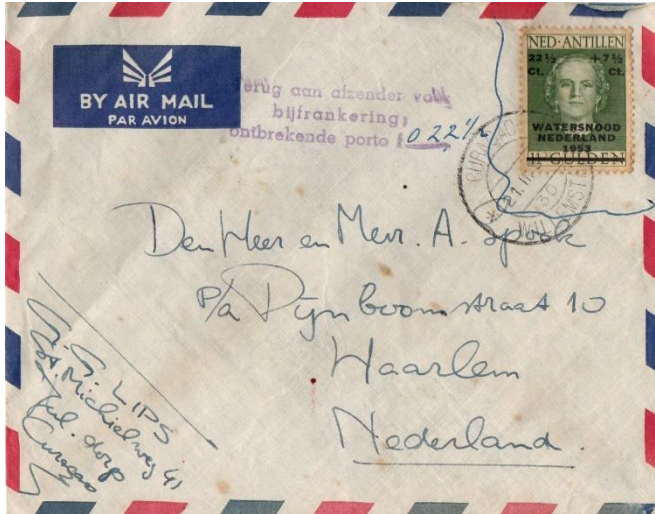 BY AIR MAIL
PAR AVION
Terug aan afzender voor
bijfrankering;
ontbrekende porto f 0 22½
NED·ANTILLEN
22½ +7½
Ct. Ct.
WATERSNOOD
NEDERLAND
1953
1½ GULDEN
21.II
WILLEMST
Den Heer en Mevr. A. Spook
p/a Pijnboomstraat 10
Haarlem
Nederland.
LIPS
St. Michielweg 41
Jul. dorp
Curaçao